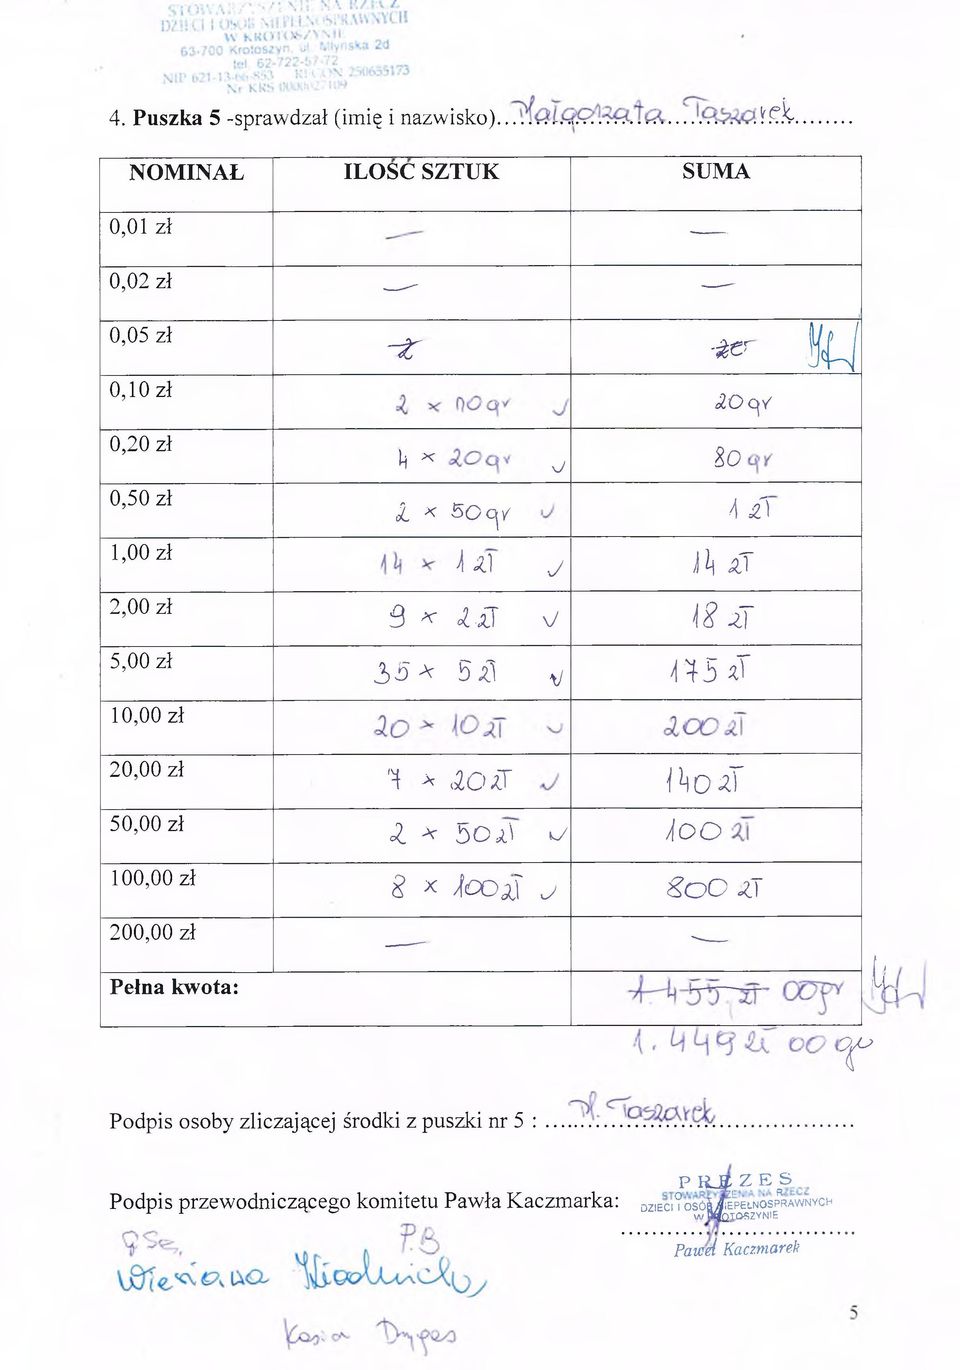 DZIECI I OSÓB NIEPEŁNOSPRAWNYCH
W KROTOSZYNIE
63-700 Krotoszyn, ul. Młyńska 2d
tel. 62-722-57-72
4. Puszka 5 -sprawdzał (imię i nazwisko)...Małgorzata...Taszarek........
NOMINAŁ ILOŚĆ SZTUK SUMA
0,01 zł — —
0,02 zł — —
0,05 zł
0,10 zł 2 x 10 gr 20 gr
0,20 zł 4 x 20 gr 80 gr
0,50 zł 2 x 50 gr 1 zł
1,00 zł 14 x 1 zł 14 zł
2,00 zł 9 x 2 zł 18 zł
5,00 zł 35 x 5 zł 175 zł
10,00 zł 20 x 10 zł 200 zł
20,00 zł 7 x 20 zł 140 zł
50,00 zł 2 x 50 zł 100 zł
100,00 zł 8 x 100 zł 800 zł
200,00 zł — —
Pełna kwota: 1.455 zł 00 gr
1.449 zł 00 gr
Podpis osoby zliczającej środki z puszki nr 5 : ....M. Taszarek..................
PREZES
STOWARZYSZENIA NA RZECZ
DZIECI I OSÓB NIEPEŁNOSPRAWNYCH
W KROTOSZYNIE
Podpis przewodniczącego komitetu Pawła Kaczmarka: ..................................
Paweł Kaczmarek
P.B
Kasia
5